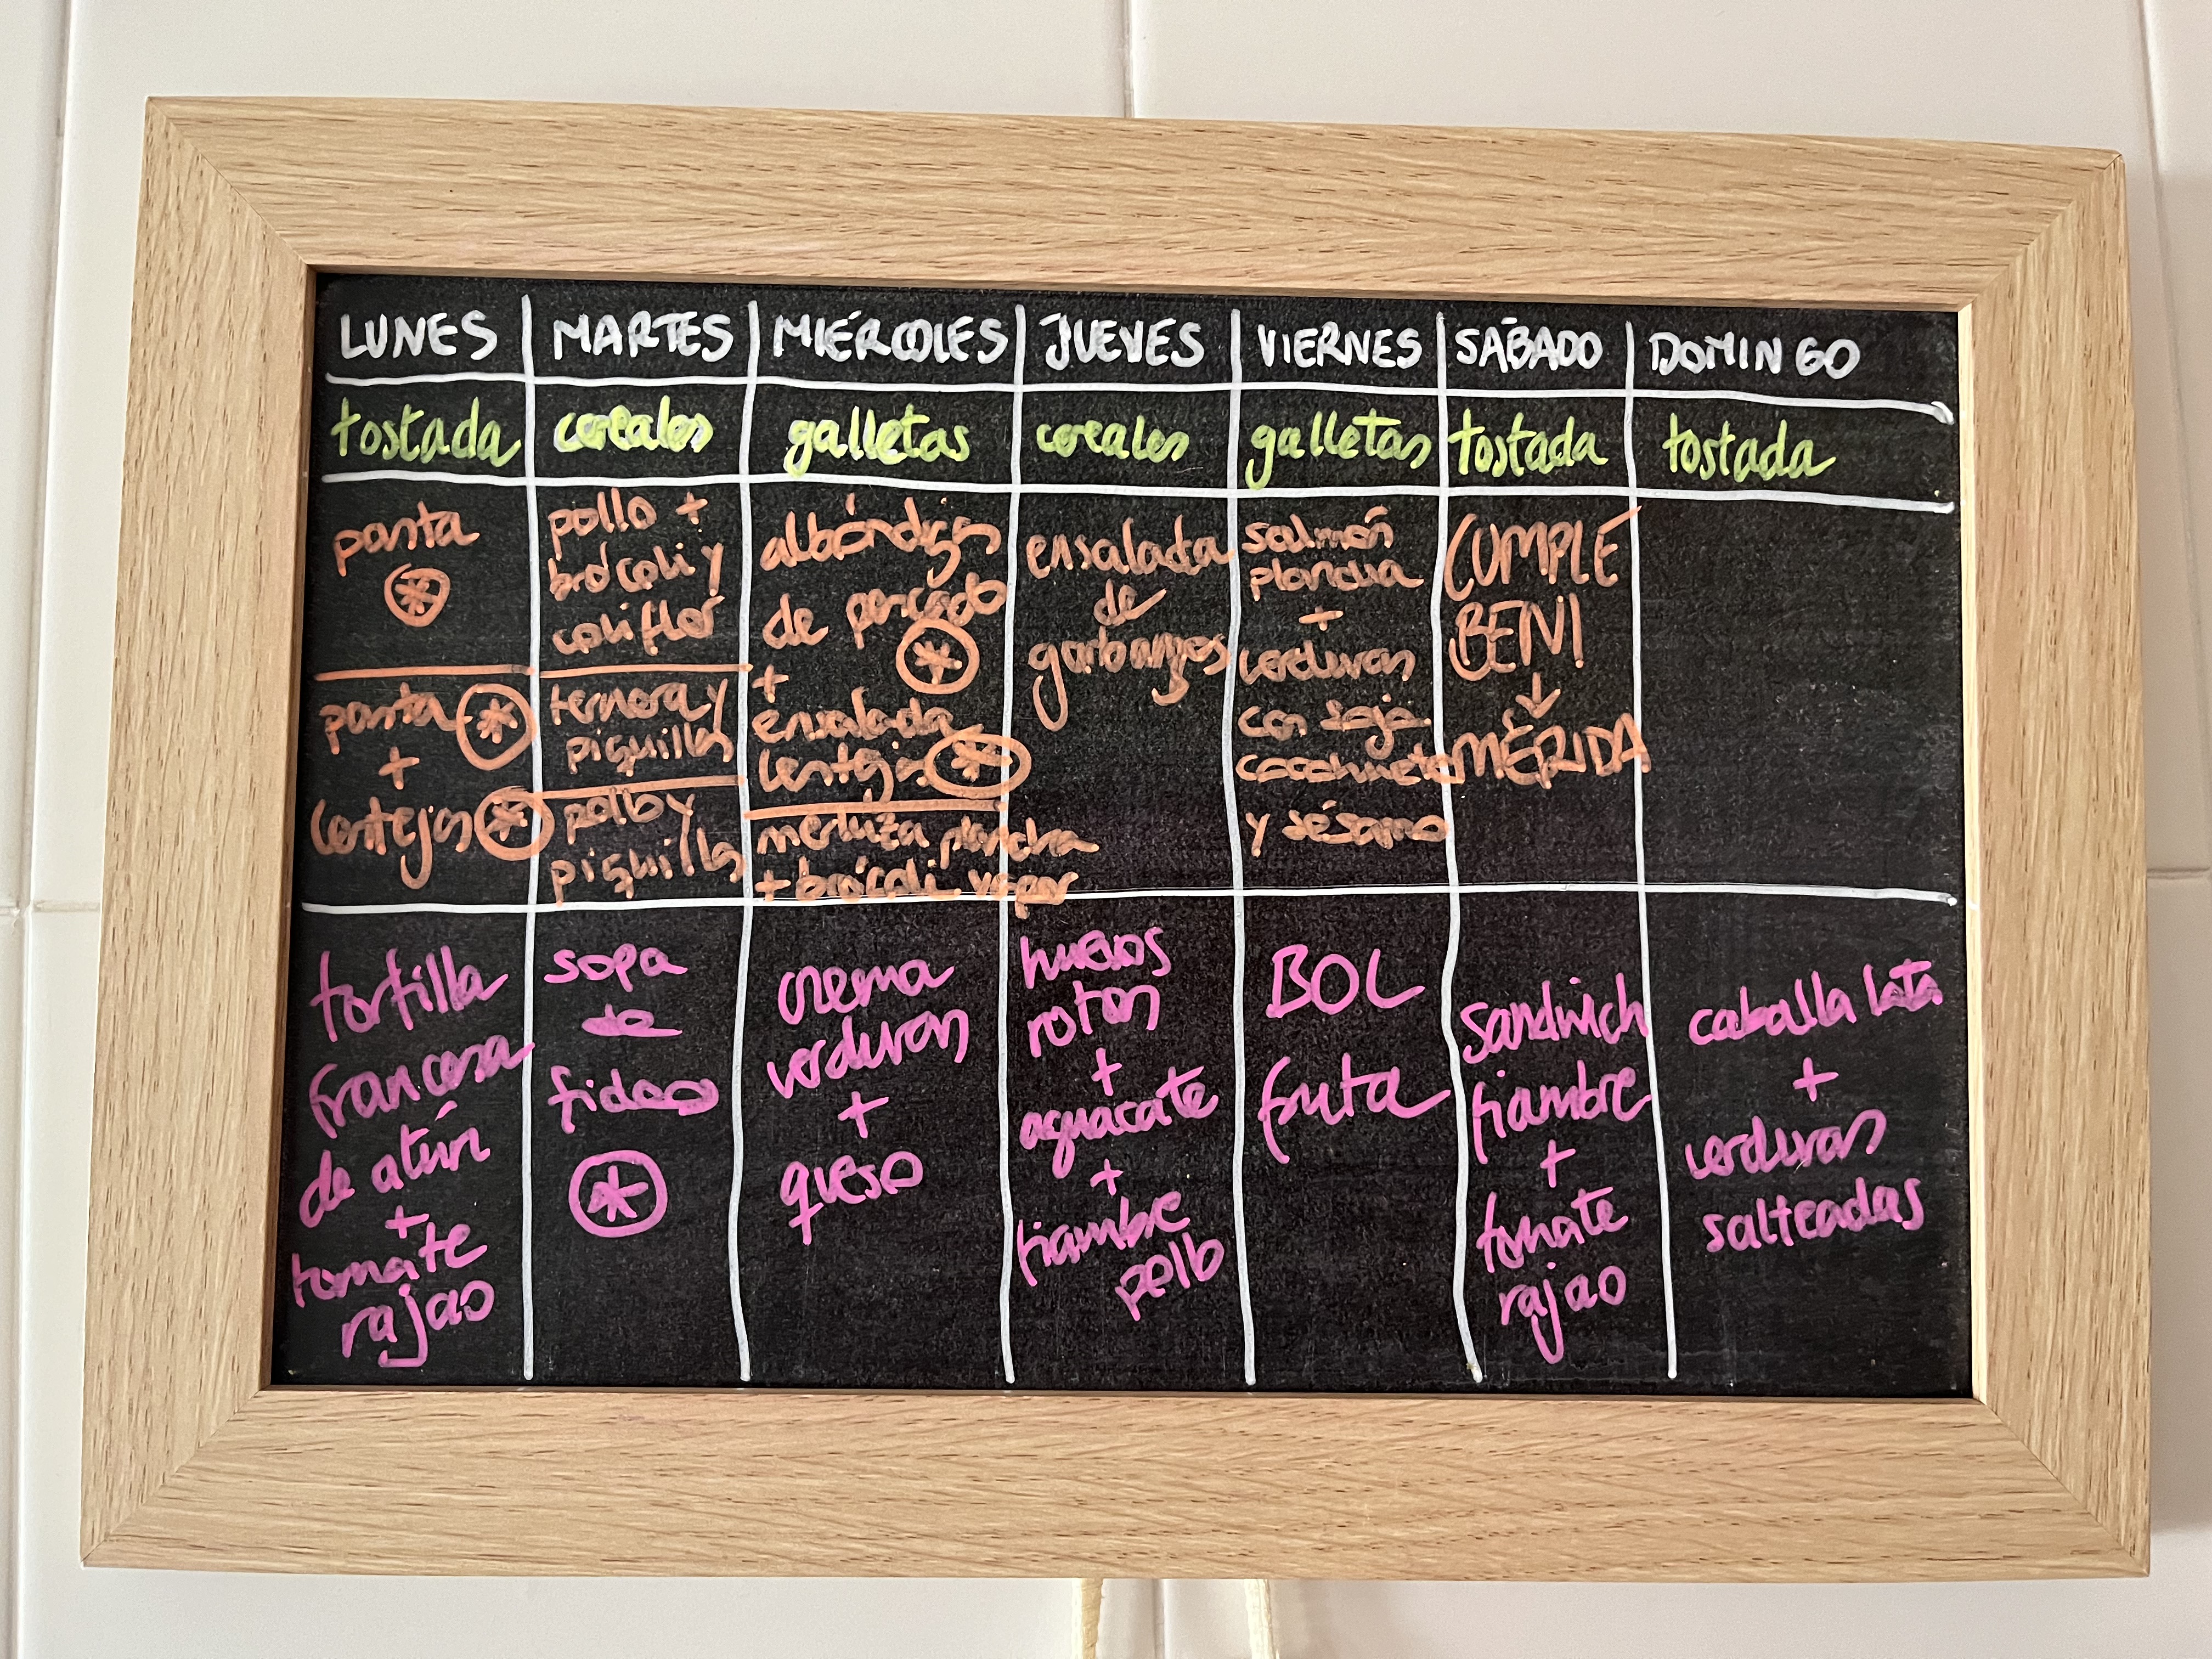 LUNES MARTES MIÉRCOLES JUEVES VIERNES SÁBADO DOMINGO
tostada cereales galletas cereales galletas tostada tostada
pasta
*
pasta *
+
lentejas *
pollo +
brócoli y
coliflor
ternera y
piquillos
pollo y
piquillos
albóndigas
de pescado
*
+
ensalada
lentejas *
merluza plancha
+ brócoli vapor
ensalada
de
garbanzos
salmón
plancha
+
verduras
con soja
cacahuete
y sésamo
CUMPLE
BENI
↓
MÉRIDA
tortilla
francesa
de atún
+
tomate
rajao
sopa
de
fideos
*
crema
verduras
+
queso
huevos
rotos
+
aguacate
+
fiambre
pollo
BOL
fruta
sandwich
fiambre
+
tomate
rajao
caballa lata
+
verduras
salteadas